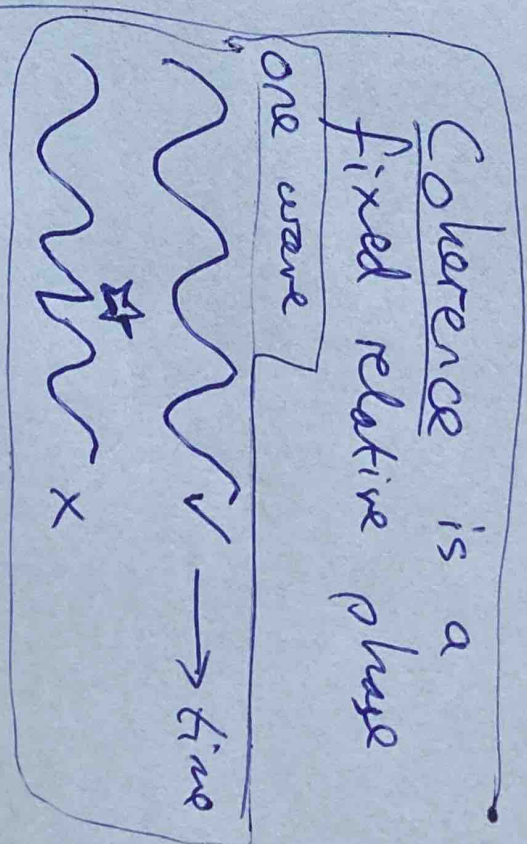 Coherence is a
fixed relative phase
one wave
✓ → time
x